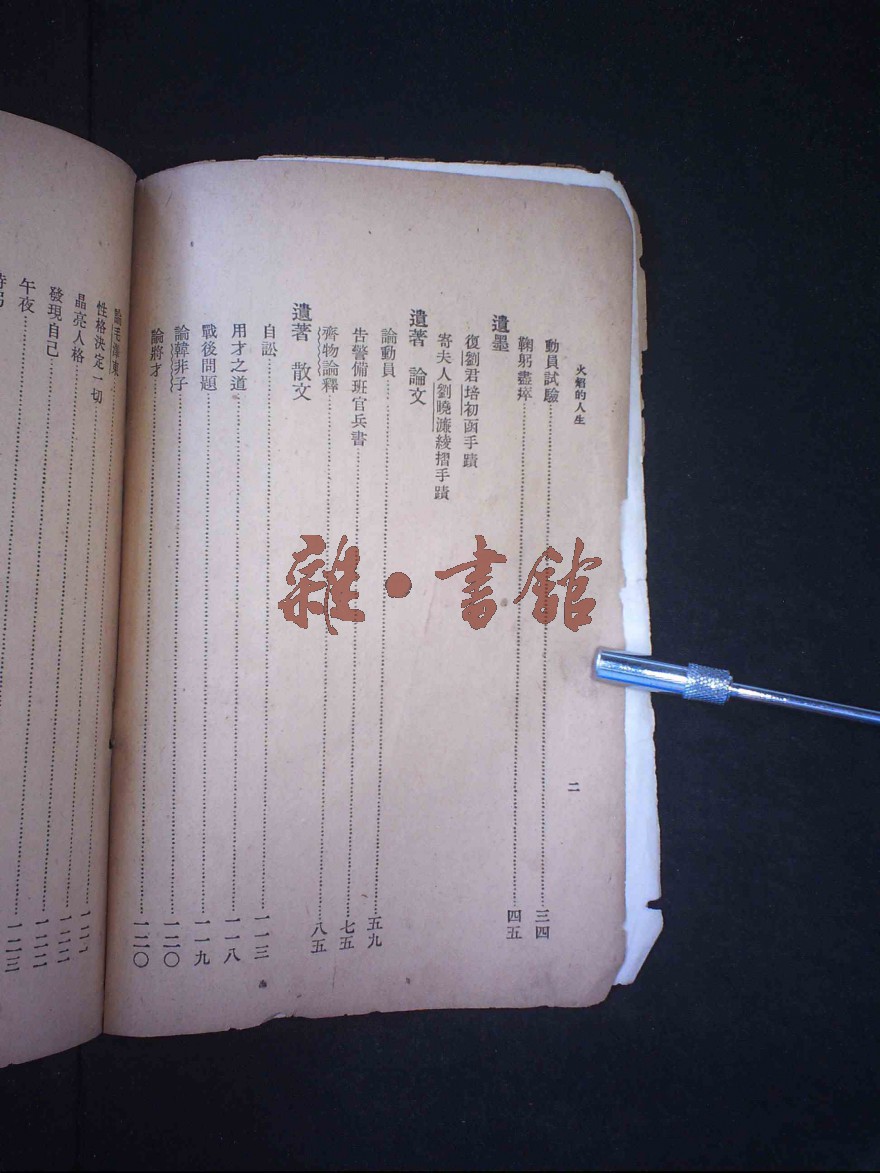 火焰的人生
二
動員試驗 三四
鞠躬盡瘁 四五
遺墨
復劉君培初函手蹟
寄夫人劉曉濂綾摺手蹟
遺著 論文
論動員 五九
告警備班官兵書 七五
齊物論釋 八五
遺著 散文
自訟 一一三
用才之道 一一八
戰後問題 一一九
論韓非子 一二〇
論將才 一二〇
論毛澤東
性格決定一切 一二二
晶亮人格 一二二
發現自己 一二二
午夜 一二三
雜·書館